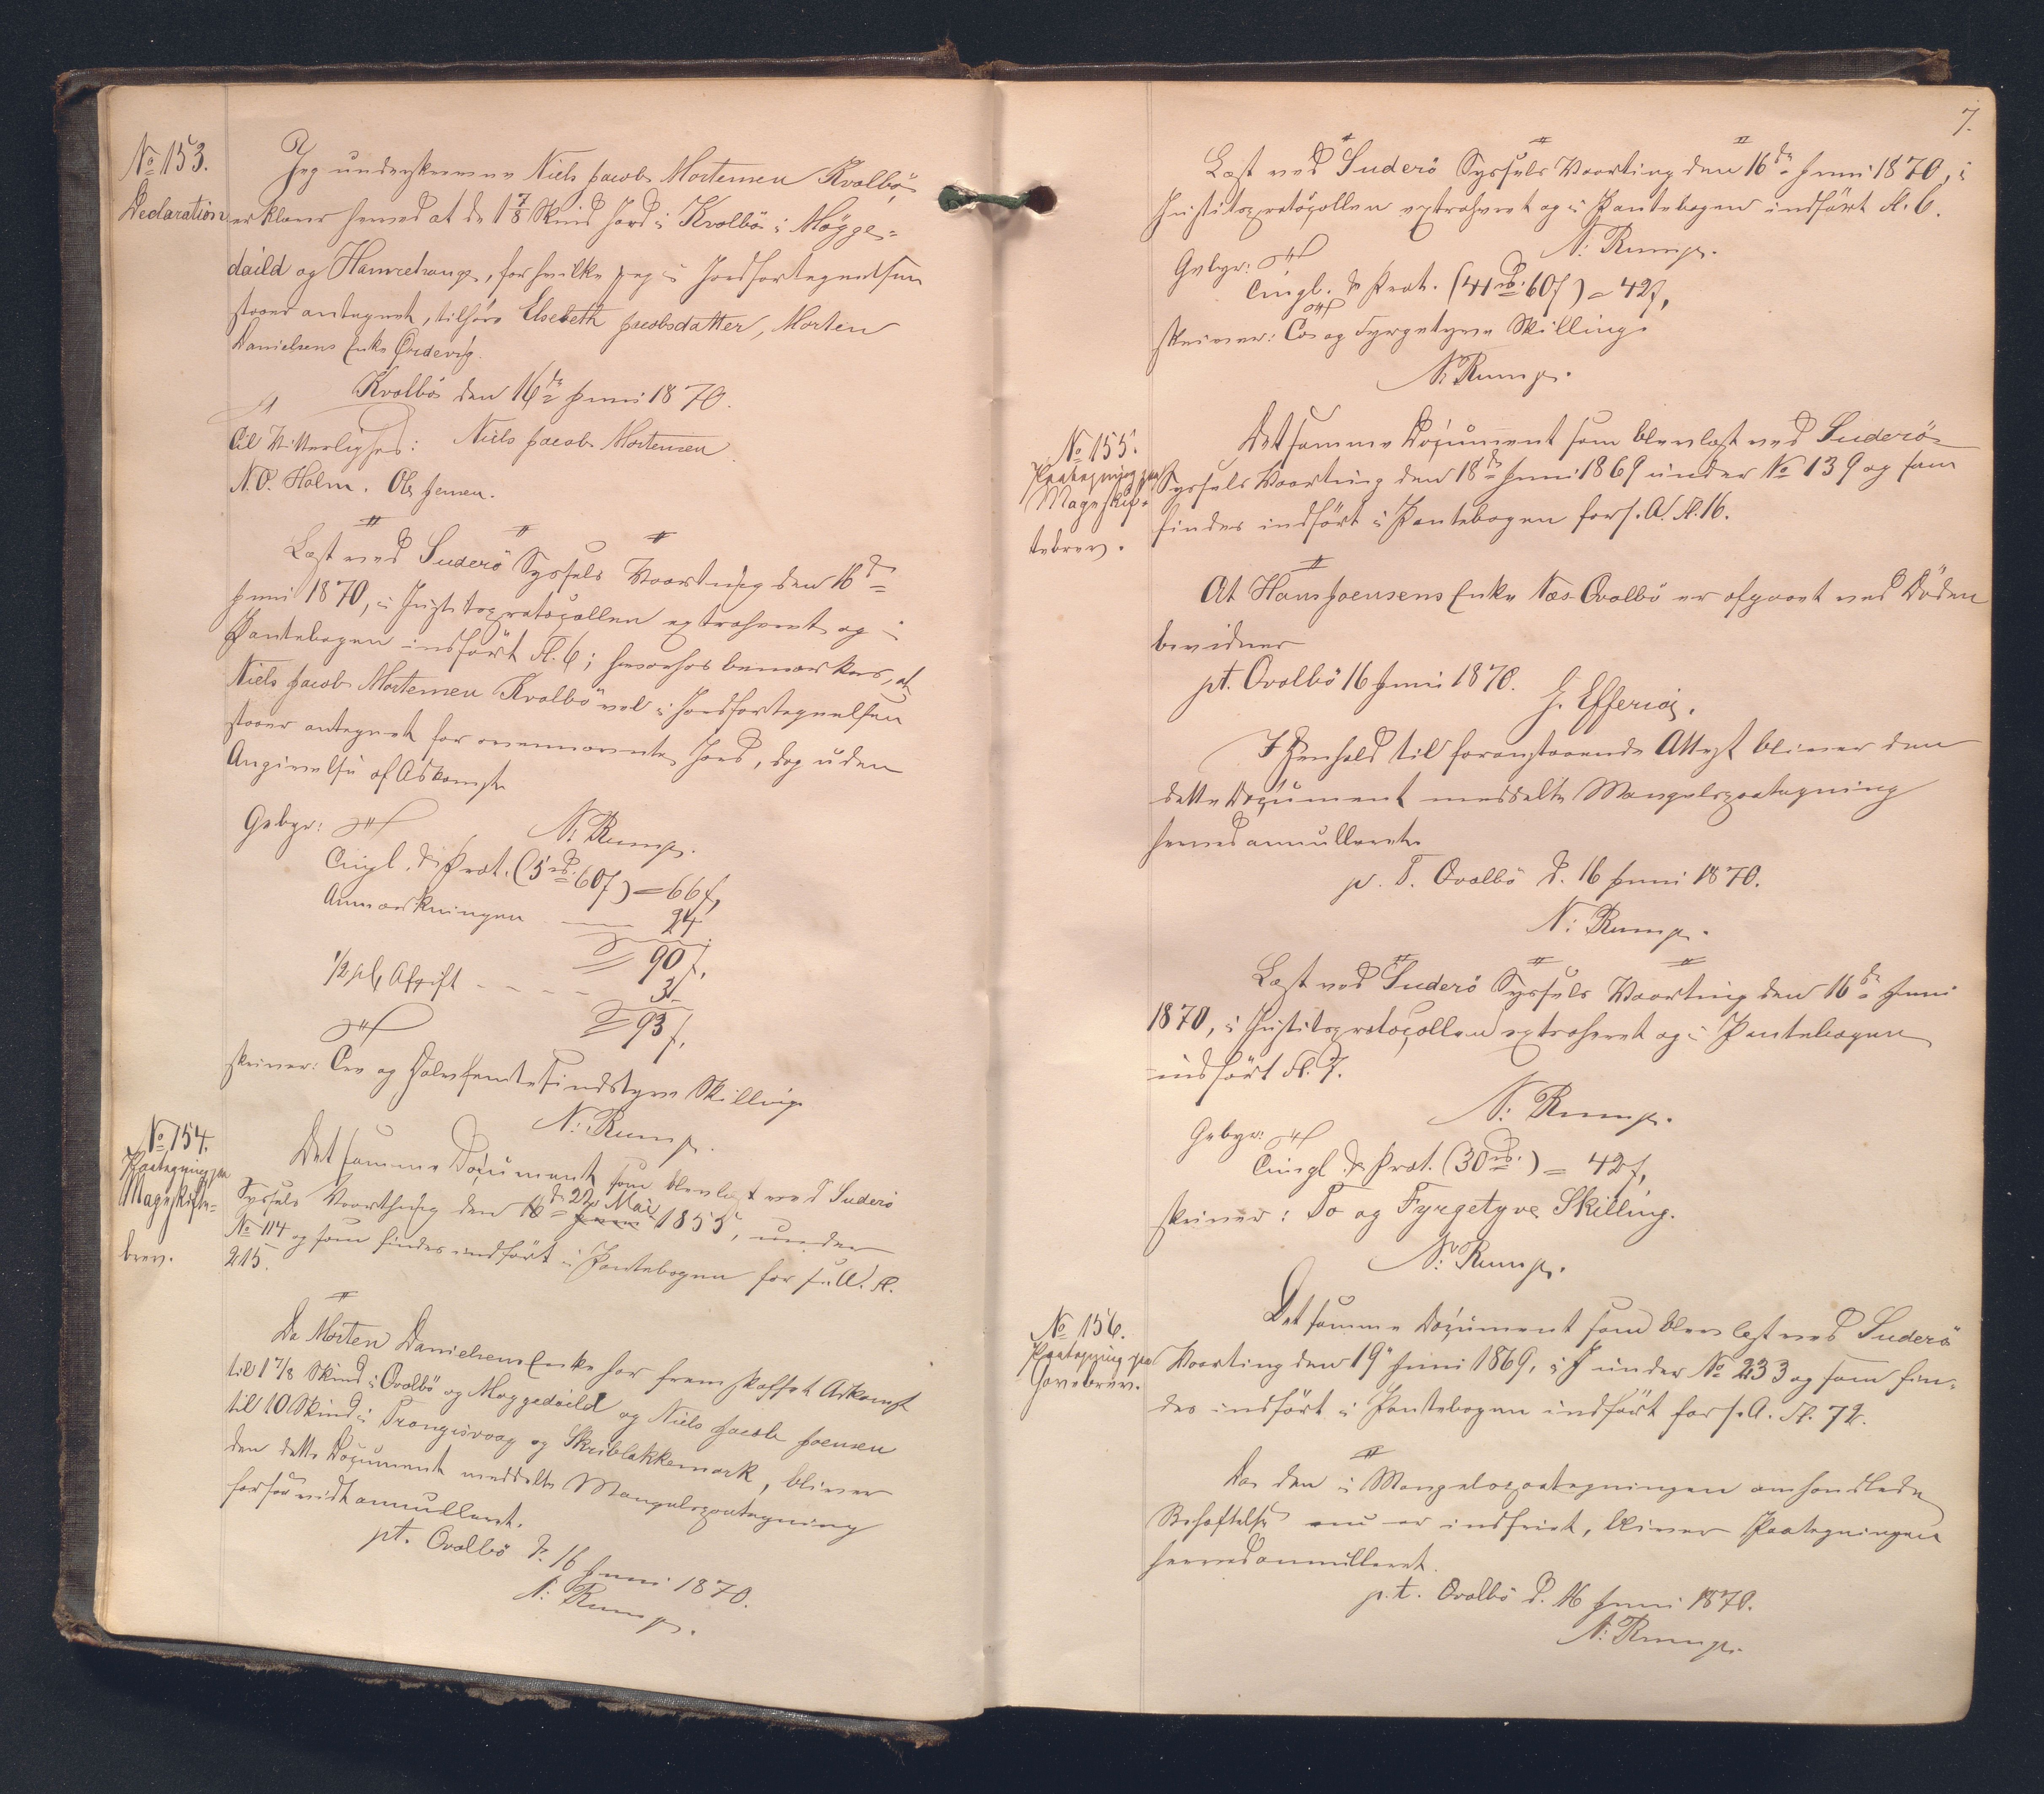 No 153.
Declaration
Jeg underskrevne Niels Jacob Mortensen Kvalbö
erklærer herved at de 1 7/8 Skind Jord i Kvalbö i Mögge-
daild og Hamrehauge, for hvilke jeg i Jordfortegnelsen
staaer antegnet, tilhøre Elsebeth Jacobsdatter, Morten
Danielsens Enke
Kvalbö den 16de Juni 1870.
Niels Jacob Mortensen
Til Vitterlighed:
N.O. Holm. Ole Jensen.
Læst ved Suderö Syssels Vaarting den 16de
Juni 1870, i Justitsprotocollen extraheret og i
Pantebogen indført Fl. 6; hvorhos bemærkes, at
Niels Jacob Mortensen Kvalbö vel i Jordfortegnelsen
staaer antegnet for ovennævnte Jord, dog uden
Angivelse af Adkomst
N: Rump.
Gebyr:
Tingl. & Prot. (5 rd. 60 f) = 66 f,
Anmærkningen — 24
90 f,
1/2 pC. Afgift - - - - 3
93 f,
skriver: Tre og Halvfemtesindstyve Skilling
N: Rump.
No 154.
Paategning paa
Mageskifte-
brev.
Det samme Document som blev læst ved Suderö
Syssels Vaarthing den 22 Mai 1855, under
No 114 og som findes indført i Pantebogen for s. A. Fl.
215.
Da Morten Danielsens Enke har fremskaffet Adkomst
til 1 7/8 Skind i Qvalbö og Møggedaild og Niels Jacob Joensen
til 10 Skind i Trangisvaag og Skriblakkemark, bliver
den dette Document meddelte Mangelspaategning
forsaavidt annulleret.
pt. Qvalbö d. 16 Juni 1870.
N: Rump.
7.
Læst ved Suderö Syssels Vaarting den 16de Juni 1870, i
Justitsprotocollen extraheret og i Pantebogen indført Fl. 6.
N: Rump.
Gebyr:
Tingl. & Prot. (41 rd. 60 f) = 42 f,
skriver: To og Fyrgetyve Skilling
N: Rump.
No 155.
Paategning paa
Mageskif-
tebrev.
Det samme Document som blev læst ved Suderö
Syssels Vaarting den 18de Juni 1869 under No 139 og som
findes indført i Pantebogen for s. A. Fl. 16.
At Hans Joensens Enke Næs Qvalbö er afgaaet ved Döden
bevidner
pt. Qvalbö 16 Juni 1870.
J. Effersöe.
I Henhold til foranstaaende Attest bliver den
dette Document meddelte Mangelspaategning
herved annulleret
p. T. Qvalbö d. 16 Juni 1870.
N: Rump.
Læst ved Suderö Syssels Vaarting den 16de Juni
1870, i Justitsprotocollen extraheret og i Pantebogen
indført Fl. 7.
N: Rump.
Gebyr:
Tingl & Prot. (30 rd.) = 42 f,
skriver: To og Fyrgetyve Skilling.
N: Rump.
No 156.
Paategning paa
Gavebrev.
Det samme Document som blev læst ved Suderö
Vaarting den 19 Juni 1869, under No 233 og som fin-
des indført i Pantebogen indført for s. A. Fl. 72.
Da den i Mangelspaategningen omhandlede
Behæftelse nu er indfriet, bliver Paategningen
herved annulleret.
p.t. Qvalbö d. 16 Juni 1870.
N: Rump.